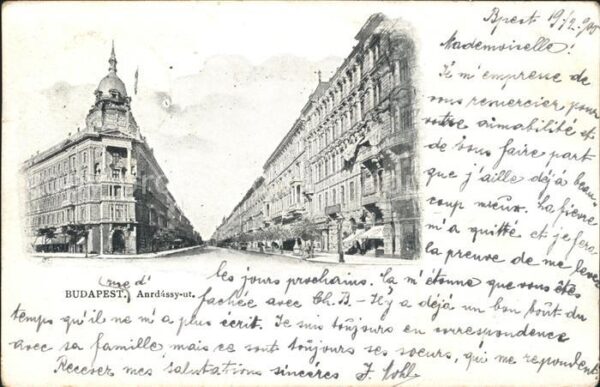 Bpest 19/2. 900
Mademoiselle!
Je m'empresse de
vous remercier pour
votre aimabilité et
de vous faire part
que j'aille déjà beau,
coup mieux. La fièvre
m'a quitté et je ferai
la preuve de me lever
(rue d'
BUDAPEST. Anrdássy-ut.
les jours prochains. Ça m'étonne que vous êtes
fachée avec Ch. B - Il y a déjà un bon bout du
temps qu'il ne m'a plus écrit. Je suis toujours en correspondence
avec sa famille mais ce sont toujours ses soeurs, qui me répondent.
Recevez mes salutations sincères J.